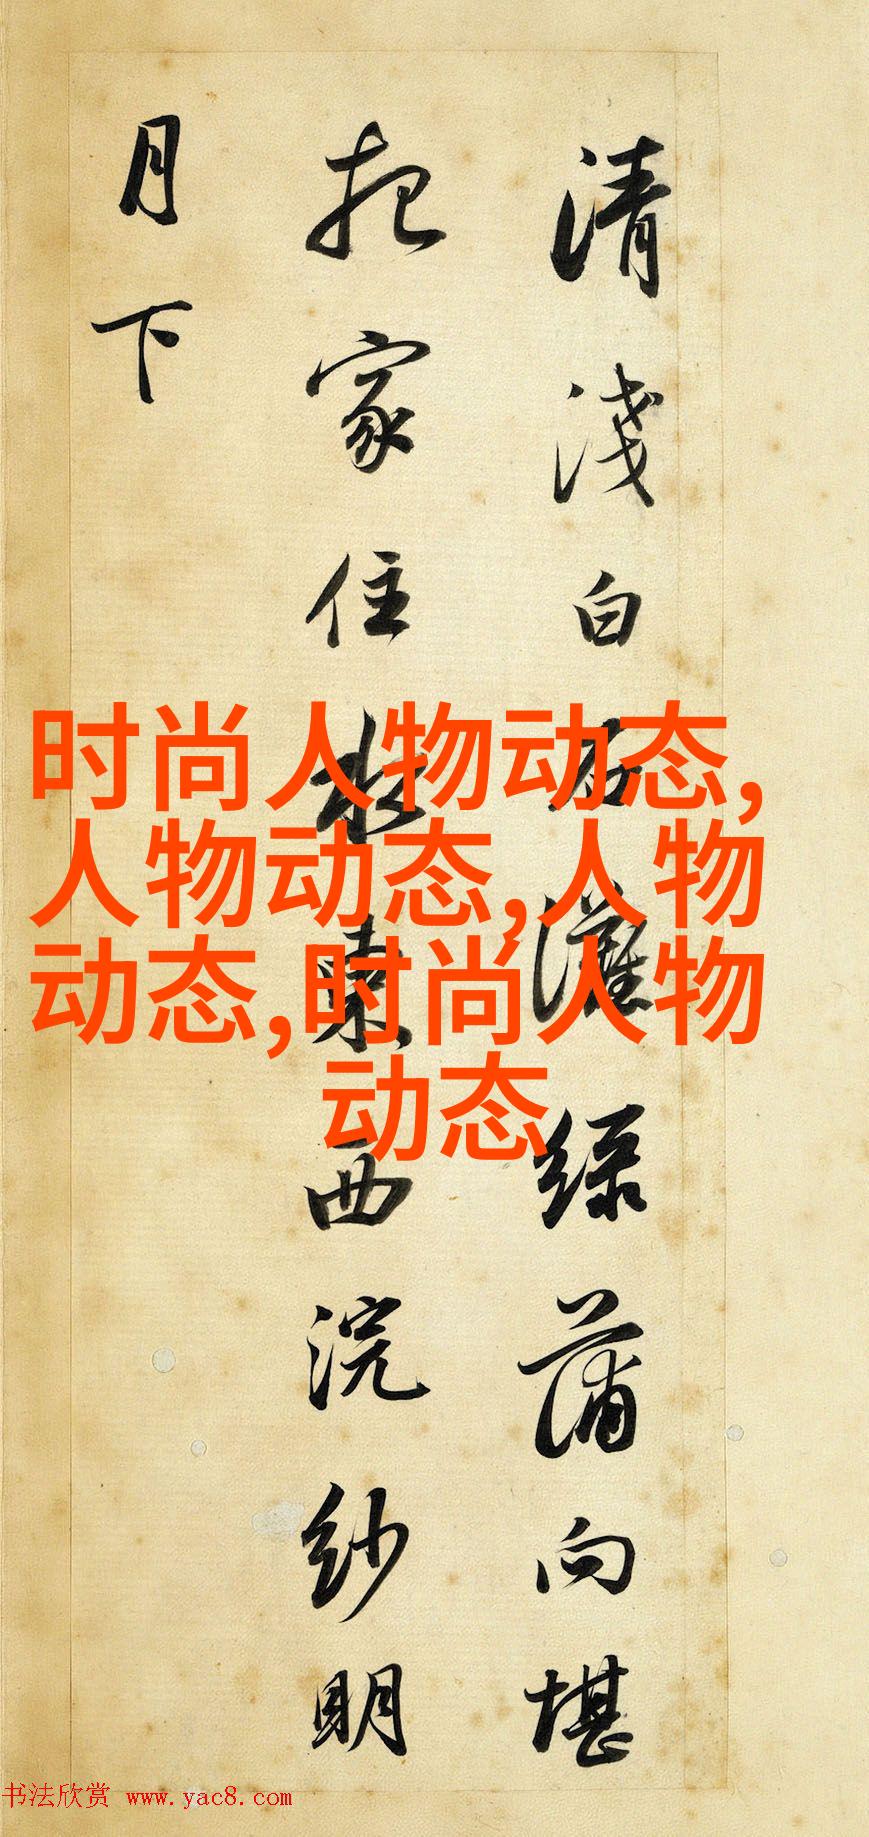 清淺白石灘綠蒲向堪
把家住水東西浣紗明
月下
时尚人物动态,
人物动态,人物
动态,时尚人物
动态
书法欣赏 www.yac8.com